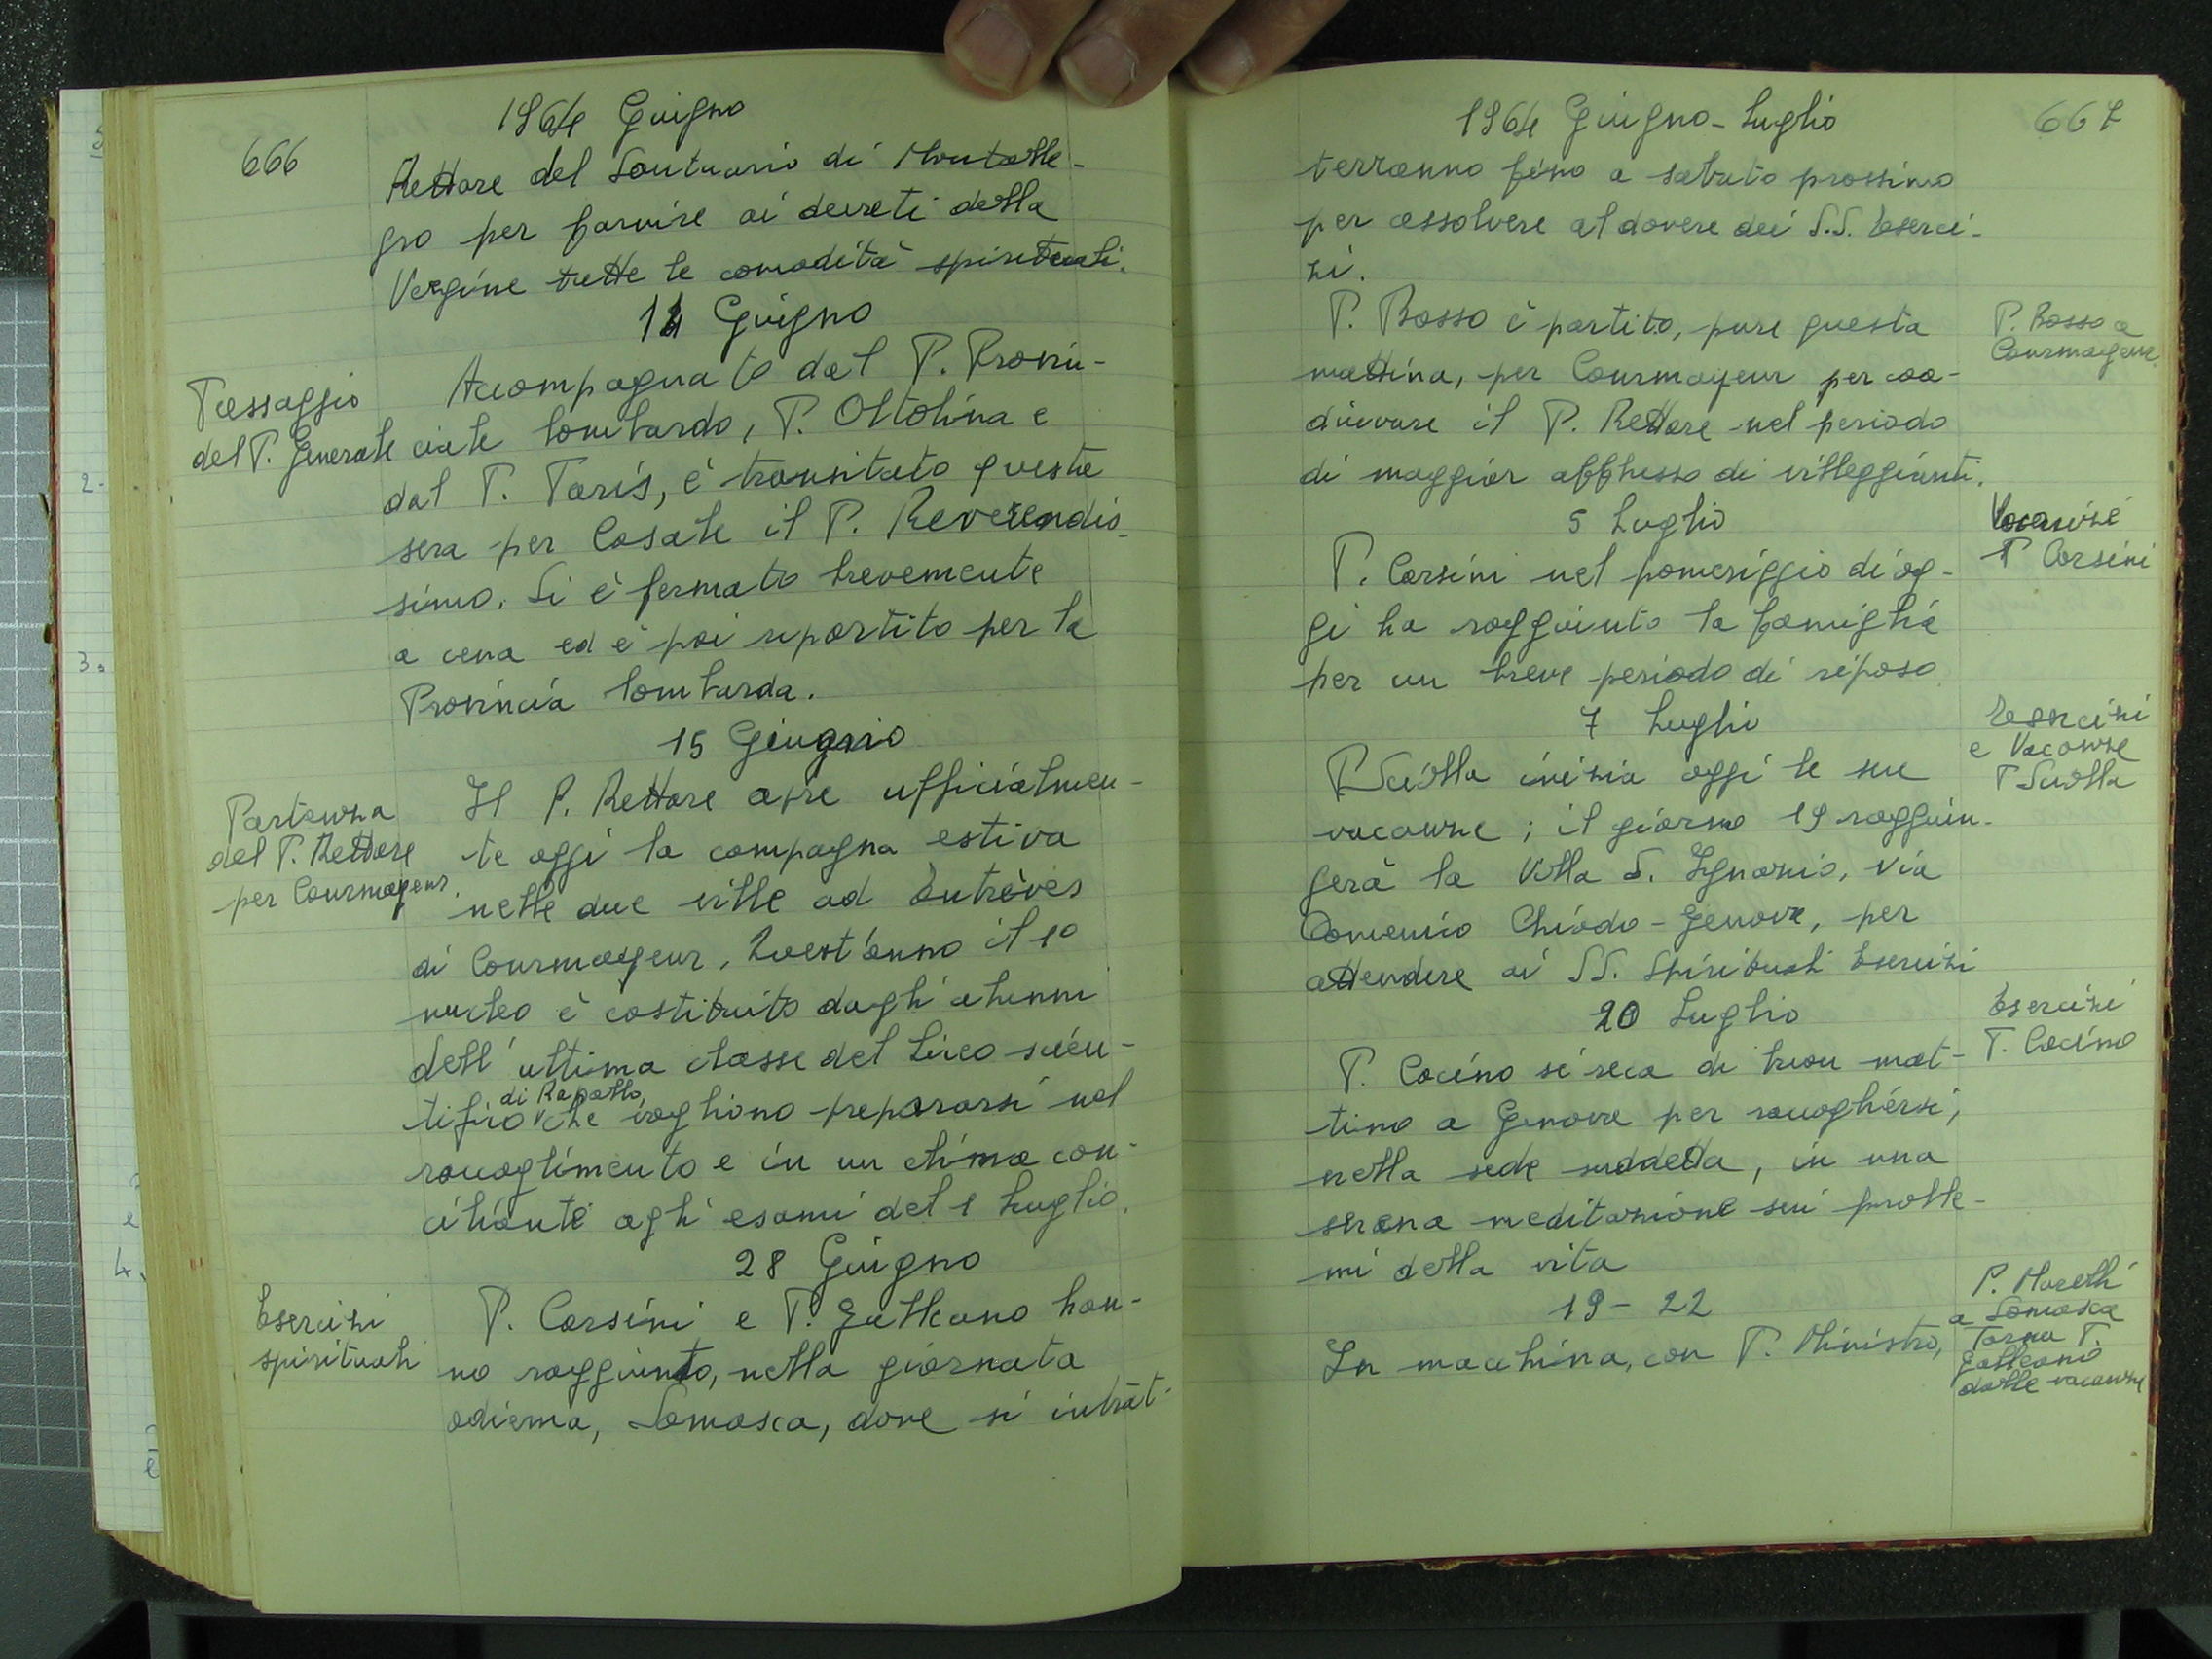 666
1964 Giugno
Rettore del Santuario di Montalle-
gro per fornire ai devoti della
Vergine tutte le comodità spirituali.
Giugno
Passaggio
del P. Generale
Accompagnato dal P. Provin-
ciale lombardo, P. Oltolina e
dal P. Taris, è transitato questa
sera per Casale il P. Reverendis-
simo. Si è fermato brevemente
a cena ed è poi ripartito per la
Provincia lombarda.
15 Giugno
Partenza
del P. Rettore
per Courmayeur.
Il P. Rettore apre ufficialmen-
te oggi la campagna estiva
nelle due ville ad Entrèves
di Courmayeur. Quest'anno il 1º
nucleo è costituito dagli alunni
dell'ultima classe del Liceo scien-
di Rapallo,
tifico che vogliono prepararsi nel
raccoglimento e in un clima con-
ciliante agli esami del 1 Luglio.
28 Giugno
Esercizi
spirituali
P. Corsini e P. Galleano han-
no raggiunto, nella giornata
odierna, Somasca, dove si intrat-
1964 Giugno - Luglio
667
terranno fino a sabato prossimo
per assolvere al dovere dei S.S. Eserci-
zi.
P. Bosso è partito, pure questa
mattina, per Courmayeur per coa-
diuvare il P. Rettore nel periodo
di maggior afflusso di villeggianti.
P. Bosso a
Courmayeur.
5 Luglio
Vacanze
P Corsini
P. Corsini nel pomeriggio di og-
gi ha raggiunto la famiglia
per un breve periodo di riposo.
7 Luglio
Esercizi
e Vacanze
P Sciolla
P Sciolla inizia oggi le sue
vacanze; il giorno 19 raggiun-
gerà la Villa S. Ignazio, Via
Domenico Chiodo - Genova, per
attendere ai SS. Spirituali Esercizi
20 Luglio
Esercizi
P. Cocino
P. Cocino si reca di buon mat-
tino a Genova per raccogliersi,
nella sede suddetta, in una
serena meditazione sui proble-
mi della vita
19 - 22
P. Morelli
a Somasca
Torna P.
Galleano
dalle vacanze
In macchina, con P. Ministro,